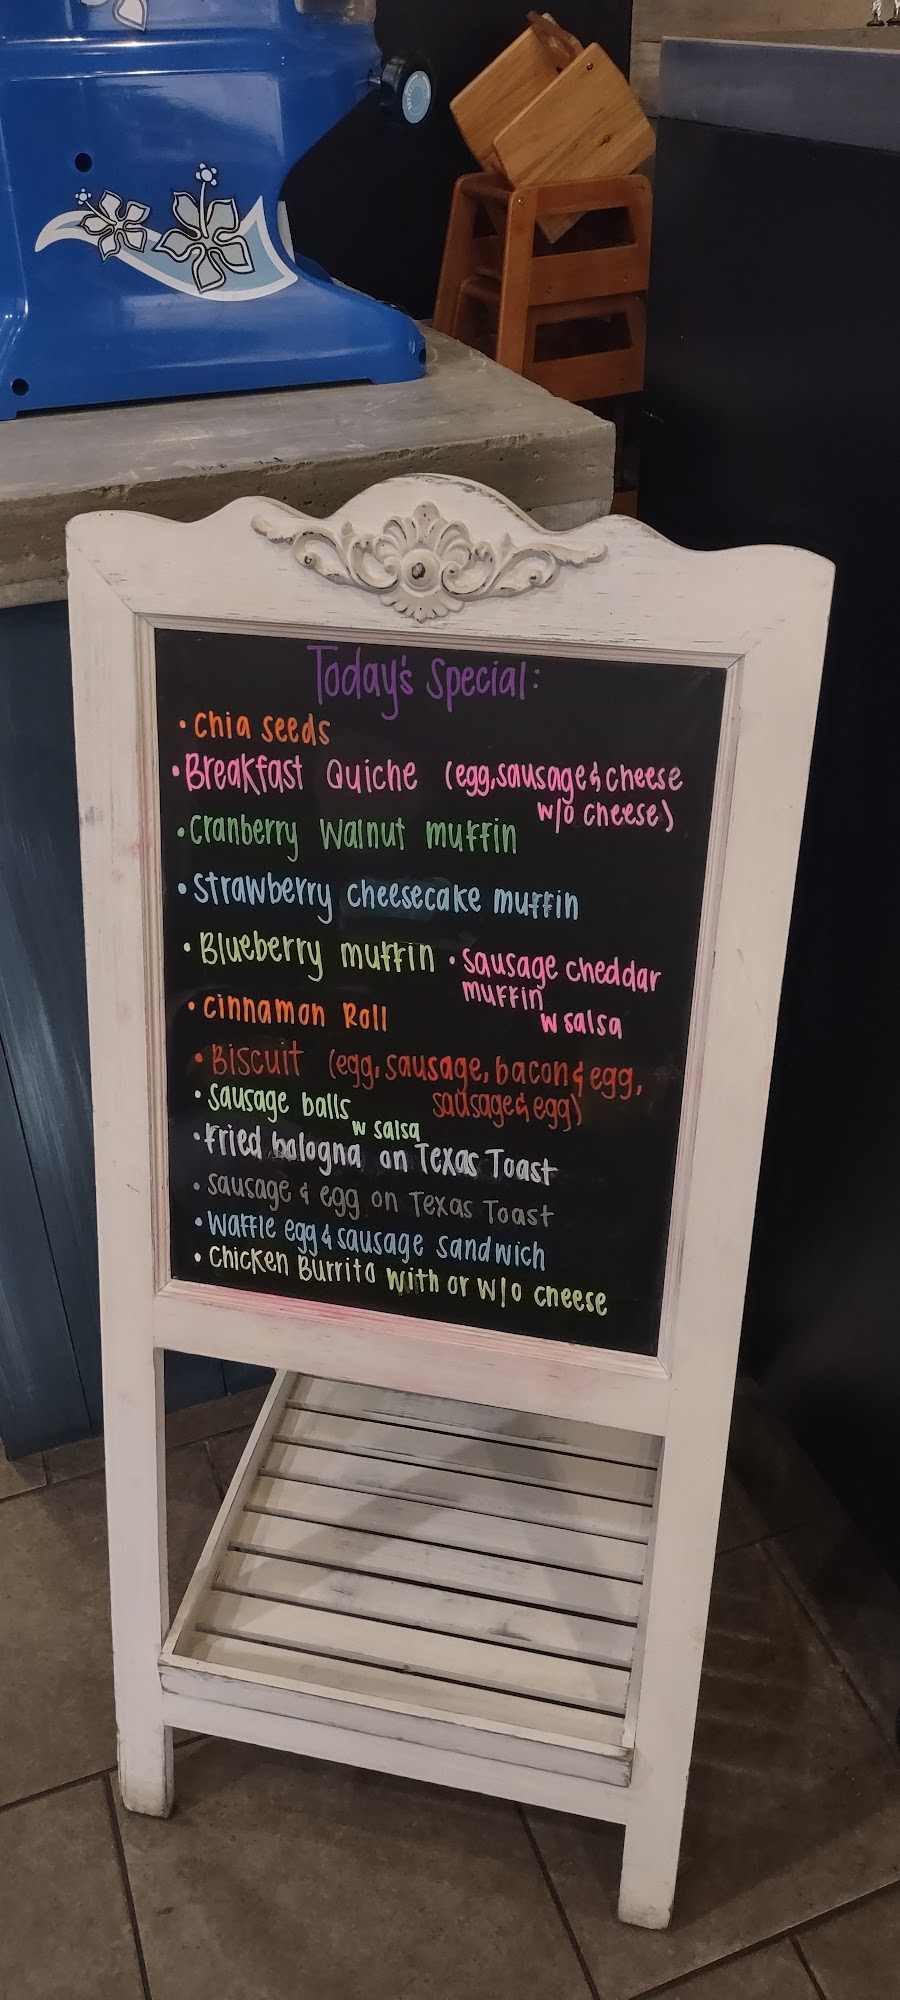 Today's Special:
• Chia seeds
• Breakfast Quiche (egg, sausage & cheese
w/o cheese)
• Cranberry Walnut muffin
• Strawberry cheesecake muffin
• Blueberry muffin • Sausage cheddar
muffin
w salsa
• Cinnamon Roll
• Biscuit (egg, sausage, bacon & egg,
sausage & egg)
• Sausage balls
w salsa
• Fried bologna on Texas Toast
• Sausage & egg on Texas Toast
• Waffle egg & sausage sandwich
• Chicken Burrito with or w/o cheese